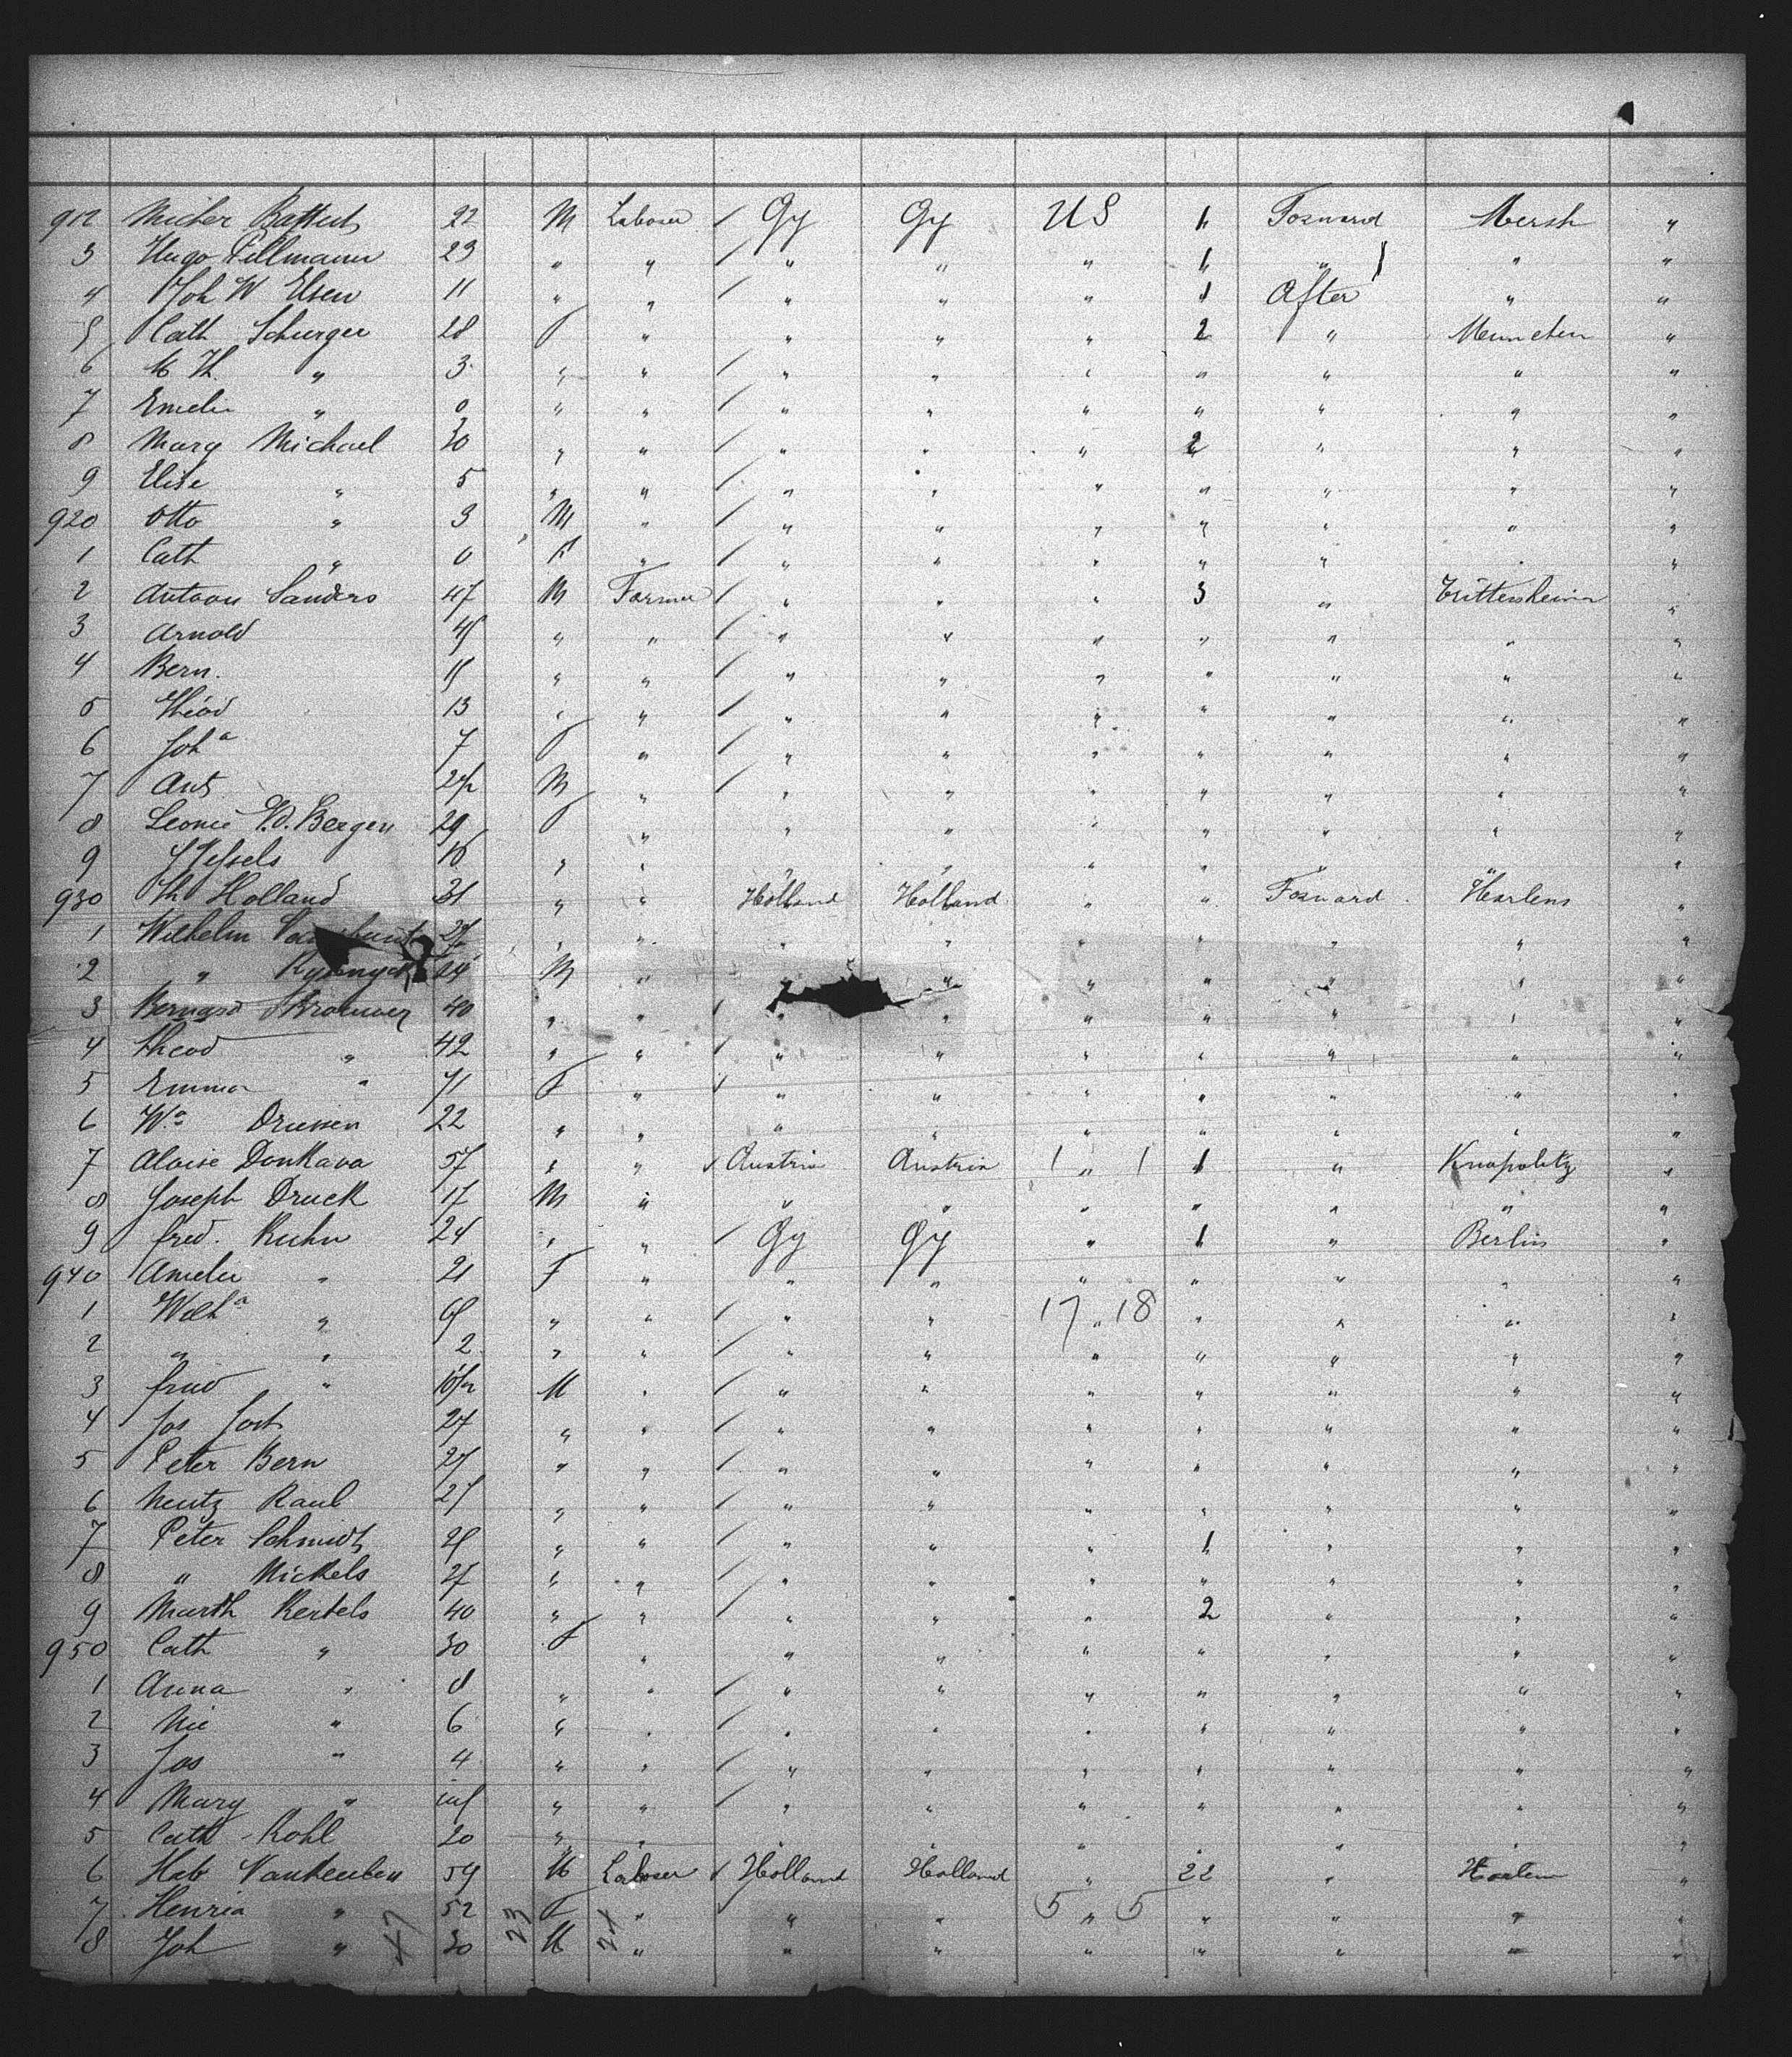 912 22 M Laborer / Gy Gy US 1 Forward Mersh "
3 Hugo Pellmann 23 " " / " " " 1 " " "
4 Joh W Elsen 11 " " / " " " 1 After " "
5 Cath Schurger 28 F " " " " 2 " Munchen "
6 M Th. " 3 " " / " " " " " " "
7 Emelie " 0 " " / " " " " " " "
8 Mary Michael 30 " " / " " " 2 " " "
9 Elise " 5 " " / " " " " " " "
920 Otto " 3 M " / " " " " " " "
1 Cath " 0 F " / " " " " " " "
2 Antoon Sanders 47 M Farmer / " " " 3 " Trittersheim "
3 Arnold " " / " " " " " " "
4 Bern. " " / " " " " " " "
5 Theod 13 " " / " " " " " " "
6 Joh a 7 F " / " " " " " " "
7 Ant M " / " " " " " " "
8 Leonie V.d. Bergen 29 F " " " " " " " "
9 16 " " " " " " " " "
930 Th Holland 31 " " Holland Holland " " Forward Harlem "
1 Wilhelm " " " " " " " " "
2 " 24 M " " " " " " " "
3 Bernard Brouwer 40 " " / " " " " " " "
4 Theod " 42 " " / " " " " " " "
5 Emma " 71 F " / " " " " " " "
6 Wa Driessen 22 " " " " " " " " "
7 Aloise Donkava 57 " " / Austria Austria 1 " 1 1 " Knapolitz "
8 Joseph Druck 17 M " " " " " " " "
9 fred. Kuhn 24 " " / Gy Gy " 1 " Berlin "
940 Amelie " 21 F " " " " " " " "
1 Wilh a " " " / " " 17 " 18 " " " "
2 " " 2 " " / " " " " " " "
3 fried " M " / " " " " " " "
4 Jos Jost 27 " " / " " " " " " "
5 Peter Bern 27 " " / " " " " " " "
6 Raub " " / " " " " " " "
7 Peter Schmidt " " / " " " 1 " " "
8 " Nickels 27 " " / " " " " " " "
9 Marth Kertels 40 " " / " " " 2 " " "
950 Cath " 30 F " " " " " " " "
1 Anna " 8 " " / " " " " " " "
2 Nic " 6 " " / " " " " " " "
3 Jos " 4 " " / " " " " " " "
4 Mary " inf " " / " " " " " " "
5 Cath Kohl 20 " " " " " " " " "
6 59 M Laborer / Holland Holland " 22 " Harlem "
7 Henria " 52 F " " " 5 " 5 " " " "
8 Joh " 30 M " " " " " " " "
47 23 24